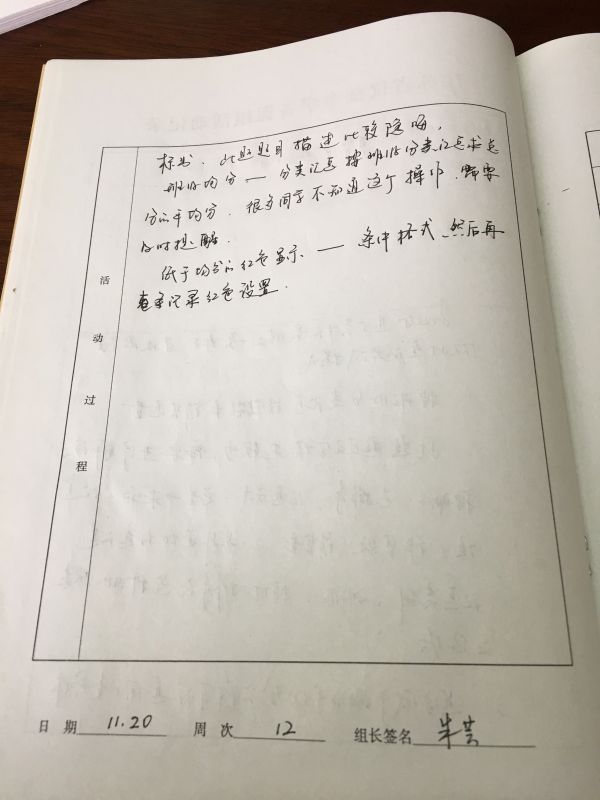 标出. 此题题目描述比较隐晦,
班级均分 — 分类汇总 按班级分类汇总求总
分的平均分. 很多同学不知道这个操作. 需要
及时提醒.
低于均分的红色显示. — 条件格式 然后再
记录红色设置.
活动过程
日 期 11.20 周 次 12 组长签名 朱芸